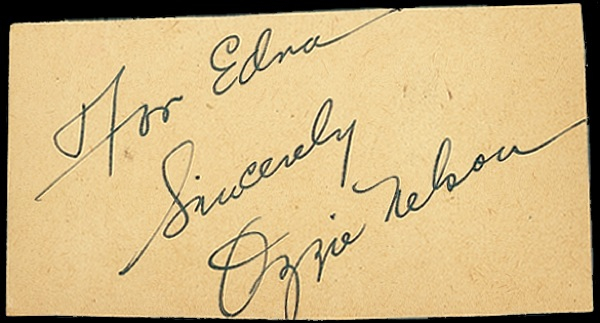 For Edna
Sincerely
Ozzie Nelson